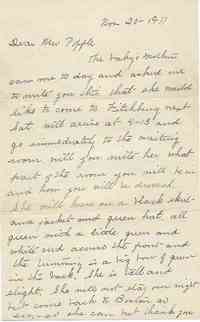 Nov. 20 - 1911
Dear Mrs. Tripple
The baby's mother
saw me to day and asked me
to write you this that she would
like to come to Fitchburg next
Sat. will arrive at 4-13 and
go immediately to the waiting
room will you write her what
part of the room you will be in
and how you will be dressed.
She will have on a black skirt
and jacket and green hat, all
green with a little green and
white end across the front and
the trimming is a big bow of green
in the back. She is tall and
slight. She will not stay over night
but come back to Boston as
she can not thank you